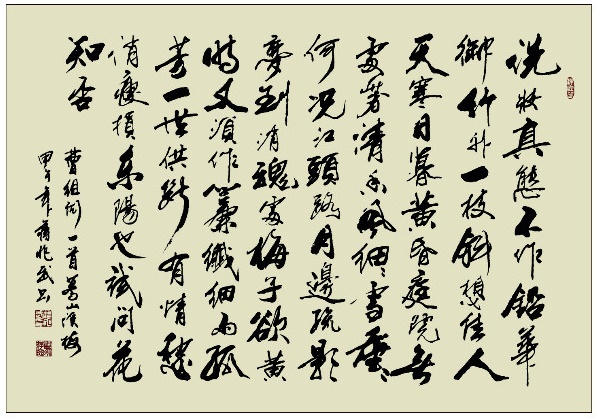 洗妝真態不作鉛華
御竹外一枝斜想佳人
天寒日暮黄昏庭院無
處著清香風細細雪垂垂
何况江頭路月邊疏影
夢到消魂處梅子欲黄
時又須作簾纖細雨孤
芳一世供斷有情愁
消瘦損東陽也試問花
知否
曹組詞一首蓦山溪梅
甲午年